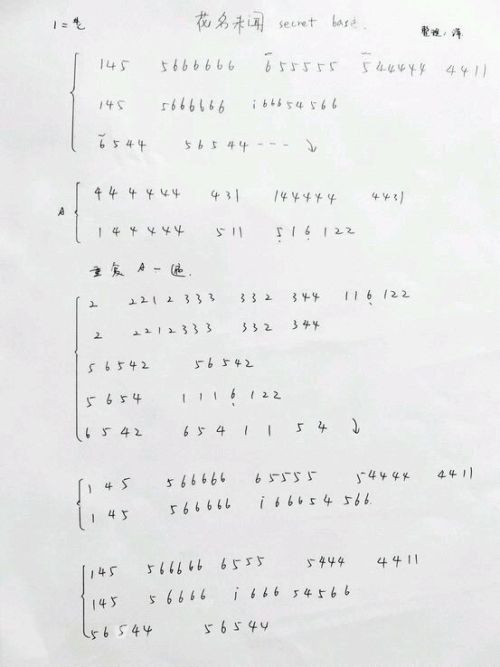 花名未闻 secret base.
145 5666666 655555 544444 4411
145 5666666 i66654566
6544 56544---
A 444444 431 144444 4431
1444444 511 516122
重复A一遍.
2 2212333 332 344 116122
2 2212333 332 344
56542 56542
5654 1116122
6542 65411 54
145 566666 65555 54444 4411
145 566666 i66654 566
145 566666 6555 5444 4411
145 56666 i666 54566
56544 56544